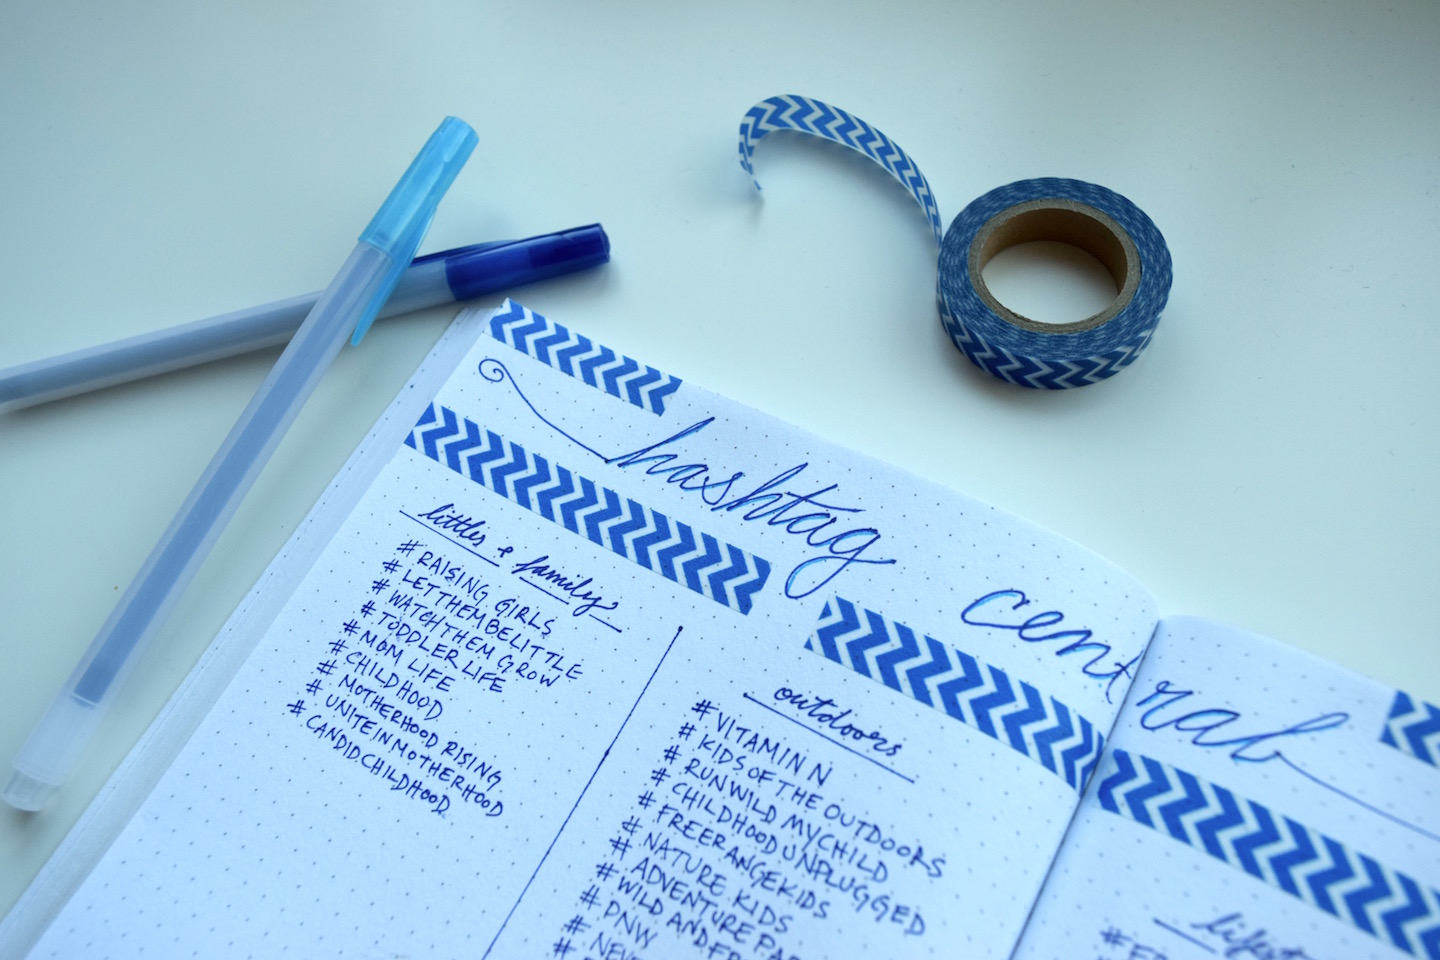 hashtag central
littles & family
# RAISING GIRLS
# LETTHEMBELITTLE
# WATCHTHEM GROW
# TODDLER LIFE
# MOM LIFE
# CHILDHOOD
# MOTHERHOOD RISING
# UNITE IN MOTHERHOOD
# CANDIDCHILDHOOD
outdoors
# VITAMIN N
# KIDS OF THE OUTDOORS
# RUNWILD MYCHILD
# CHILDHOODUNPLUGGED
# FREERANGEKIDS
# NATURE KIDS
# ADVENTURE
# WILD AND
# PNW
#
#